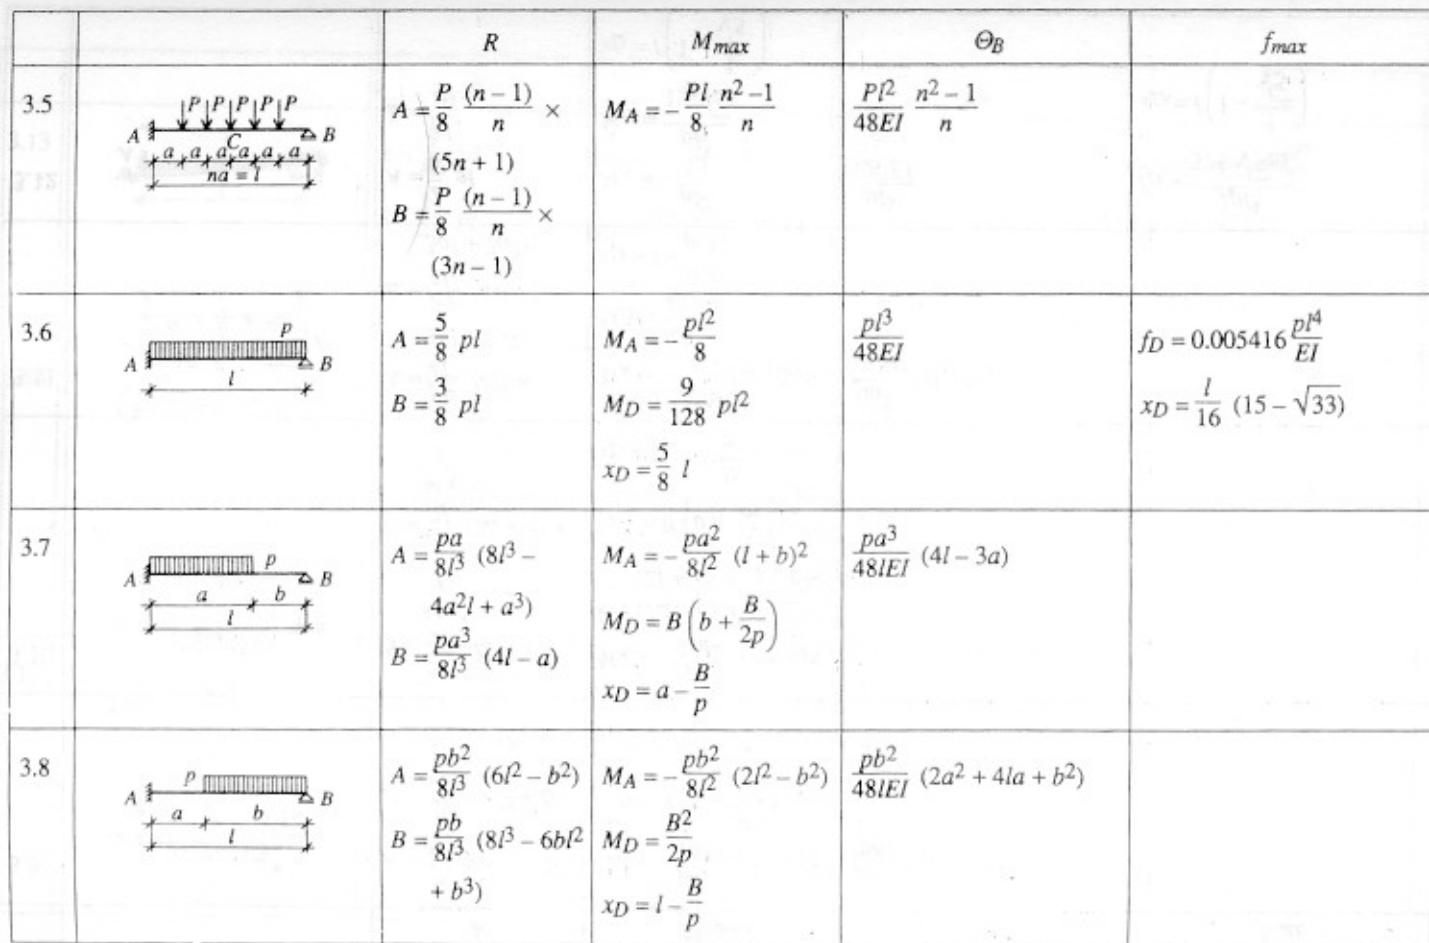 R M_max Θ_B f_max
3.5
P P P P P
A C B
a a a a a a
na = l
A = P/8 (n – 1)/n ×
(5n + 1)
B = P/8 (n – 1)/n ×
(3n – 1)
M_A = – Pl/8 (n² – 1)/n
Pl²/48EI (n² – 1)/n
3.6
p
A B
l
A = 5/8 pl
B = 3/8 pl
M_A = – pl²/8
M_D = 9/128 pl²
x_D = 5/8 l
pl³/48EI
f_D = 0.005416 pl⁴/EI
x_D = l/16 (15 – √33)
3.7
p
A B
a b
l
A = pa/8l³ (8l³ –
4a²l + a³)
B = pa³/8l³ (4l – a)
M_A = – pa²/8l² (l + b)²
M_D = B (b + B/2p)
x_D = a – B/p
pa³/48lEI (4l – 3a)
3.8
p
A B
a b
l
A = pb²/8l³ (6l² – b²)
B = pb/8l³ (8l³ – 6bl²
+ b³)
M_A = – pb²/8l² (2l² – b²)
M_D = B²/2p
x_D = l – B/p
pb²/48lEI (2a² + 4la + b²)